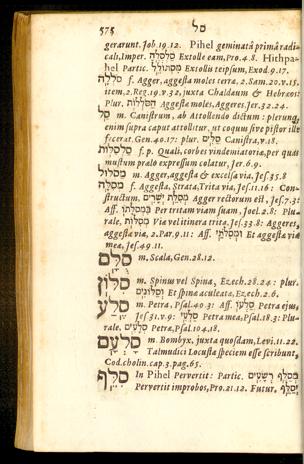 575 סל
gerarunt. Job 19.12. Pihel geminatâ primâ radi-
cali, Imper. סַלְסְלֶהָ Extolle eam, Pro.4.8. Hithpa-
hel Partic. מִסְתּוֹלֵל Extollis teipsum, Exod.9.17.
סֹלְלָה f. Agger, aggesta moles terra. 2.Sam.20.v.15.
item, 2.Reg.19.v.32. juxta Chaldæum & Hebræos
Plur. הַסֹּלְלוֹת Aggesta moles, Aggeres, Jer.32.24.
סַל m. Canistrum, ab Attollendo dictum: plerunq;
enim supra caput attollitur, ut coquus sive pistor ille
fecerat. Gen.40.17: plur. סַלִּים Canistra, v.18.
סַלְסִלּוֹת f. p. Quali, corbes vindemiatoria, per quas
mustum prælo expressum colatur, Jer.6.9.
מַסְלוּל m. Agger, aggesta & excelsa via, Jesa.35.8
מְסִלָּה f. Aggesta, Strata, Trita via, Jes.11.16: Con-
structum. מְסִלַּת יְשָׁרִים Agger rectorum est, Jes.7.3:
Aff. בִּמְסִלָּתוֹ Per tritam viam suam, Joel.2.8: Plu-
rale. מְסִלּוֹת Via vel itinera trita, Jes.33.8: Aggeres,
aggesta via, 2.Par.9.11: Aff. וּמְסִלֹּתַי Et aggesta via
mea, Jes.49.11.
סֻלָּם m. Scala, Gen.28.12.
סִלּוֹן m. Spinus vel Spina, Ezech.28.24: plur.
וְסַלּוֹנִים Et spina aculeata, Ezech.2.6.
סֶלַע m. Petra, Psal.40.3: Aff. סַלְעוֹ Petra ejus,
Jes.31.v.9: סַלְעִי Petra mea, Psal.18.3: Plu-
rale. סְלָעִים Petra, Psal.104.18.
סָלְעָם m. Bombyx, juxta quosdam, Levi.11.22.
Talmudici Locustæ speciem esse scribunt,
Cod.cholin.cap.3.pag.65.
סִלֵּף In Pihel Pervertit: Partic. מְסַלֵּף רְשָׁעִים
Pervertit improbos, Pro.21.12. Futur.